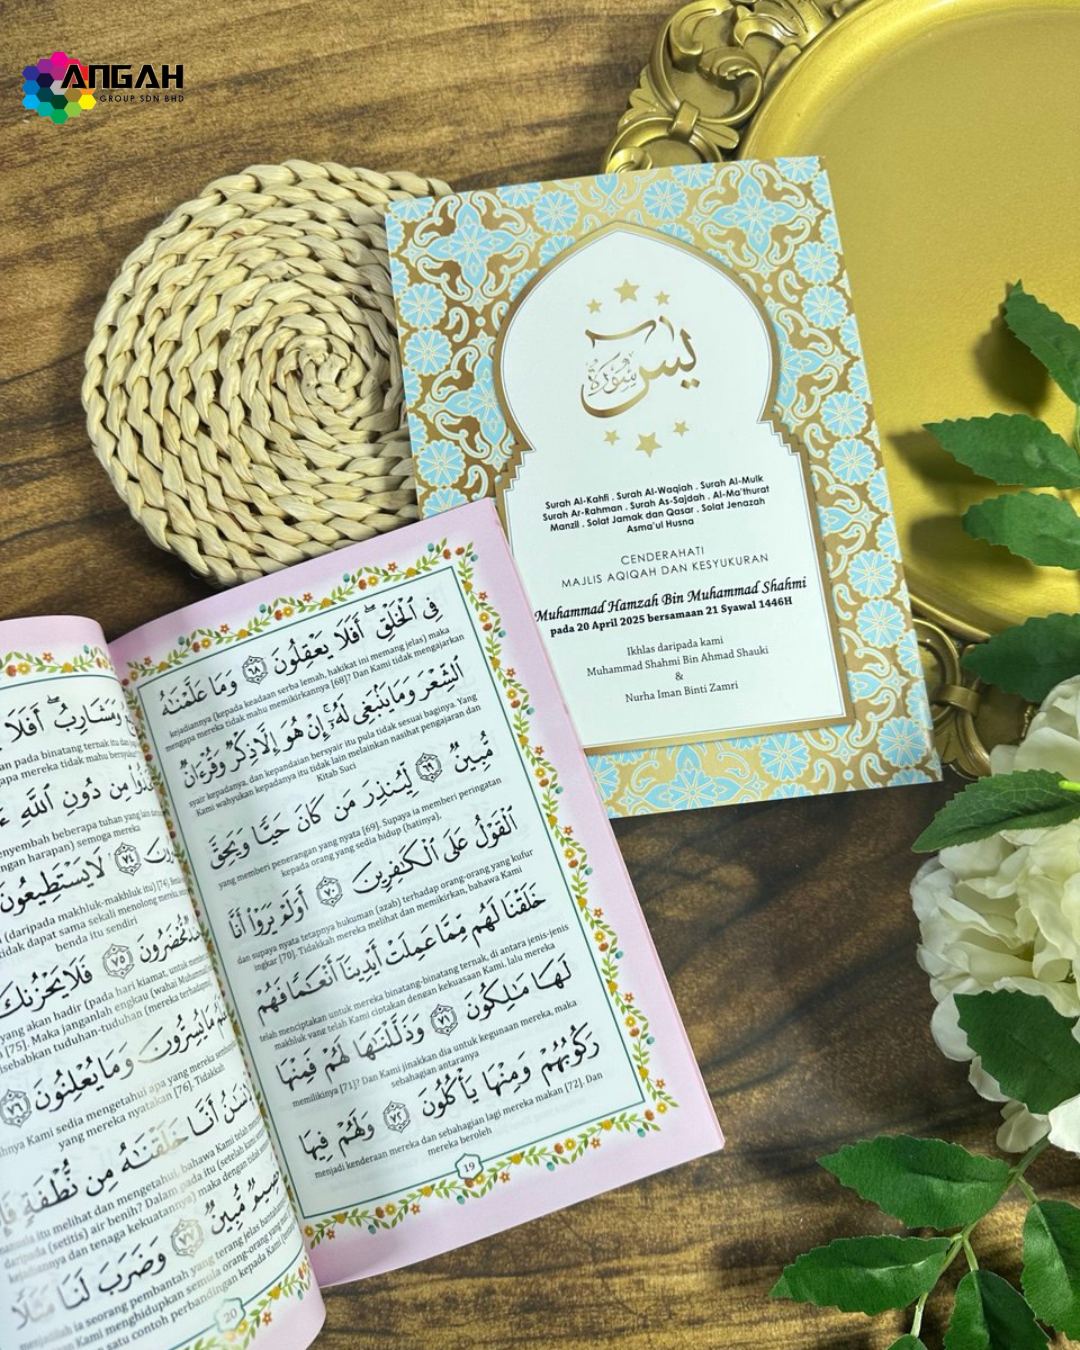 ANGAH
GROUP SDN BHD
سورة يس
Surah Al-Kahfi . Surah Al-Waqiah . Surah Al-Mulk
Surah Ar-Rahman . Surah As-Sajdah . Al-Ma'thurat
Manzil . Solat Jamak dan Qasar . Solat Jenazah
Asma'ul Husna
CENDERAHATI
MAJLIS AQIQAH DAN KESYUKURAN
Muhammad Hamzah Bin Muhammad Shahmi
pada 20 April 2025 bersamaan 21 Syawal 1446H
Ikhlas daripada kami
Muhammad Shahmi Bin Ahmad Shauki
&
Nurha Iman Binti Zamri
فِي ٱلْخَلْقِ ۖ أَفَلَا يَعْقِلُونَ ٦٨ وَمَا عَلَّمْنَٰهُ
kejadiannya (kepada keadaan serba lemah, hakikat ini memang jelas) maka
mengapa mereka tidak mahu memikirkannya [68]? Dan Kami tidak mengajarkan
ٱلشِّعْرَ وَمَا يَنۢبَغِى لَهُۥٓ ۚ إِنْ هُوَ إِلَّا ذِكْرٌ وَقُرْءَانٌ
syair kepadanya, dan kepandaian bersyair itu pula tidak sesuai baginya. Yang
Kami wahyukan kepadanya itu tidak lain melainkan nasihat pengajaran dan
Kitab Suci
مُّبِينٌ ٦٩ لِّيُنذِرَ مَن كَانَ حَيًّا وَيَحِقَّ
yang memberi penerangan yang nyata [69]. Supaya ia memberi peringatan
kepada orang yang sedia hidup (hatinya),
ٱلْقَوْلُ عَلَى ٱلْكَٰفِرِينَ ٧٠ أَوَلَمْ يَرَوْا۟ أَنَّا
dan supaya nyata tetapnya hukuman (azab) terhadap orang-orang yang kufur
ingkar [70]. Tidakkah mereka melihat dan memikirkan, bahawa Kami
خَلَقْنَا لَهُم مِّمَّا عَمِلَتْ أَيْدِينَآ أَنْعَٰمًا فَهُمْ
telah menciptakan untuk mereka binatang-binatang ternak, di antara jenis-jenis
makhluk yang telah Kami ciptakan dengan kekuasaan Kami, lalu mereka
لَهَا مَٰلِكُونَ ٧١ وَذَلَّلْنَٰهَا لَهُمْ فَمِنْهَا
memilikinya [71]? Dan Kami jinakkan dia untuk kegunaan mereka, maka
sebahagian antaranya
رَكُوبُهُمْ وَمِنْهَا يَأْكُلُونَ ٧٢ وَلَهُمْ فِيهَا
menjadi kenderaan mereka dan sebahagian lagi mereka makan [72]. Dan
mereka beroleh
19
وَمَشَارِبُ ۖ أَفَلَا
pada binatang ternak itu dan
mereka tidak mahu bersyukur
مِن دُونِ ٱللَّهِ
menyembah beberapa tuhan yang lain
harapan) semoga mereka
٧٤ لَا يَسْتَطِيعُونَ
(daripada makhluk-makhluk itu) [74].
tidak dapat sama sekali menolong mereka,
benda itu sendiri
مُّحْضَرُونَ ٧٥ فَلَا يَحْزُنكَ
yang akan hadir (pada hari kiamat, untuk
[75]. Maka janganlah engkau (wahai Muhammad)
tuduhan-tuduhan (mereka terhadapmu)
مَا يُسِرُّونَ وَمَا يُعْلِنُونَ ٧٦
Kami sedia mengetahui apa yang mereka
yang mereka nyatakan [76]. Tidakkah
أَنَّا خَلَقْنَٰهُ مِن نُّطْفَةٍ
itu melihat dan mengetahui, bahawa Kami telah
(setitis) air benih? Dalam pada itu (setelah Kami
kejadiannya dan tenaga kekuatannya) maka dengan tidak
خَصِيمٌ مُّبِينٌ ٧٧ وَضَرَبَ لَنَا مَثَلًا
ia seorang pembantah yang terang jelas
Kami menghidupkan semula orang-orang yang
satu contoh perbandingan kepada Kami
20